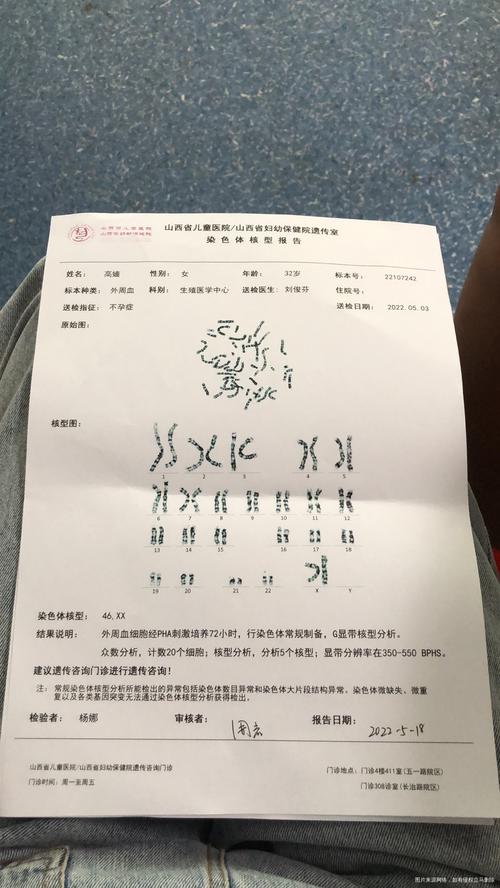 山西省儿童医院
山西省妇幼保健院
山西省儿童医院/山西省妇幼保健院遗传室
染色体核型报告
姓名： 高嫱 性别： 女 年龄： 32岁 标本号： 22107242
标本种类： 外周血 科别： 生殖医学中心 送检医生： 刘俊芬 住院号：
送检指征： 不孕症 送检日期： 2022.05.03
原始图：
核型图：
1 2 3 4 5
6 7 8 9 10 11 12
13 14 15 16 17 18
19 20 21 22 X Y
染色体核型： 46,XX
结果说明： 外周血细胞经PHA刺激培养72小时，行染色体常规制备，G显带核型分析。
众数分析，计数20个细胞；核型分析，分析5个核型；显带分辨率在350-550 BPHS。
建议遗传咨询门诊进行遗传咨询！
注： 常规染色体核型分析所能检出的异常包括染色体数目异常和染色体大片段结构异常。染色体微缺失、微重
复以及各类基因突变无法通过染色体核型分析获得检出。
检验者： 杨娜 审核者： 报告日期： 2022-5-18
山西省儿童医院/山西省妇幼保健院遗传咨询门诊 门诊地点：门诊4楼411室(五一路院区)
门诊时间：周一至周五 门诊308诊室(长治路院区)
图片来源网络，如有侵权立马删除